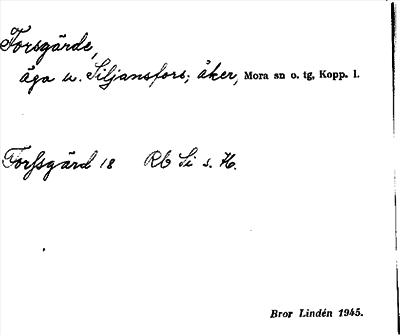 Forsgärde,
äga u. Siljansfors; åker, Mora sn o. tg, Kopp. l.
Forssgärd 18 Rb Si s. H.
Bror Lindén 1945.